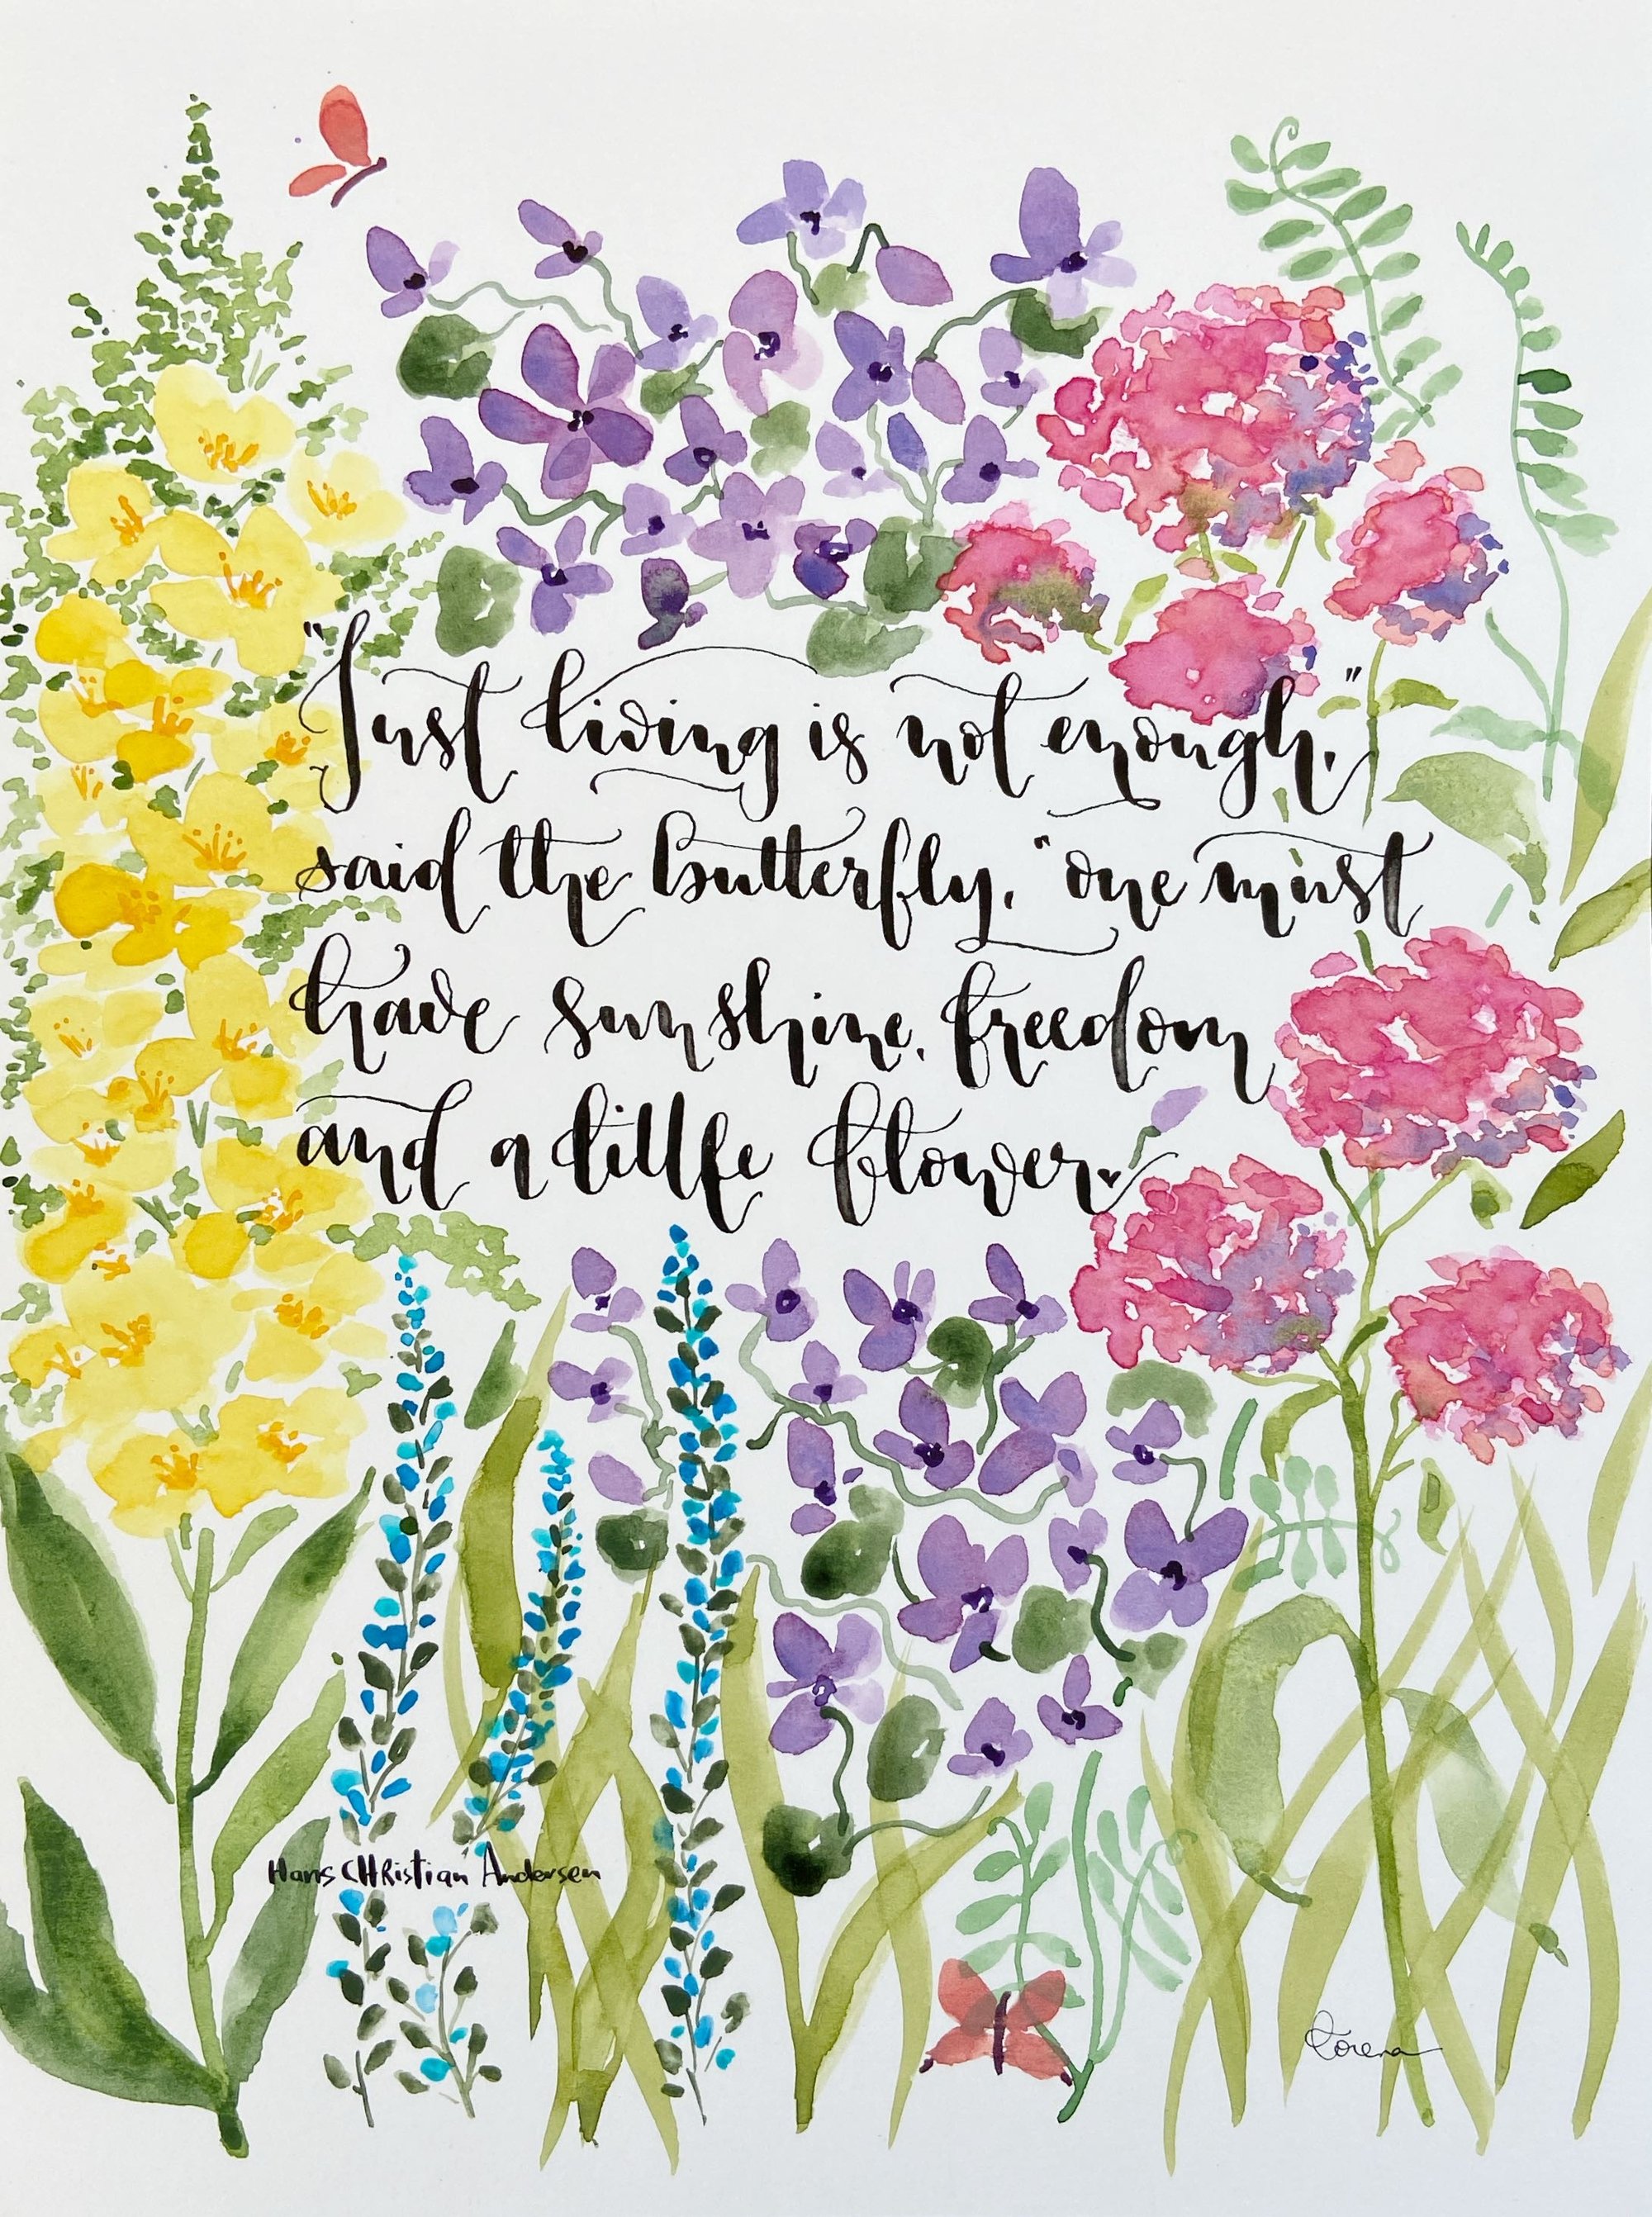 "Just living is not enough,"
said the butterfly, "one must
have sunshine, freedom
and a little flower.
Hans CHRistian Andersen
Lorena